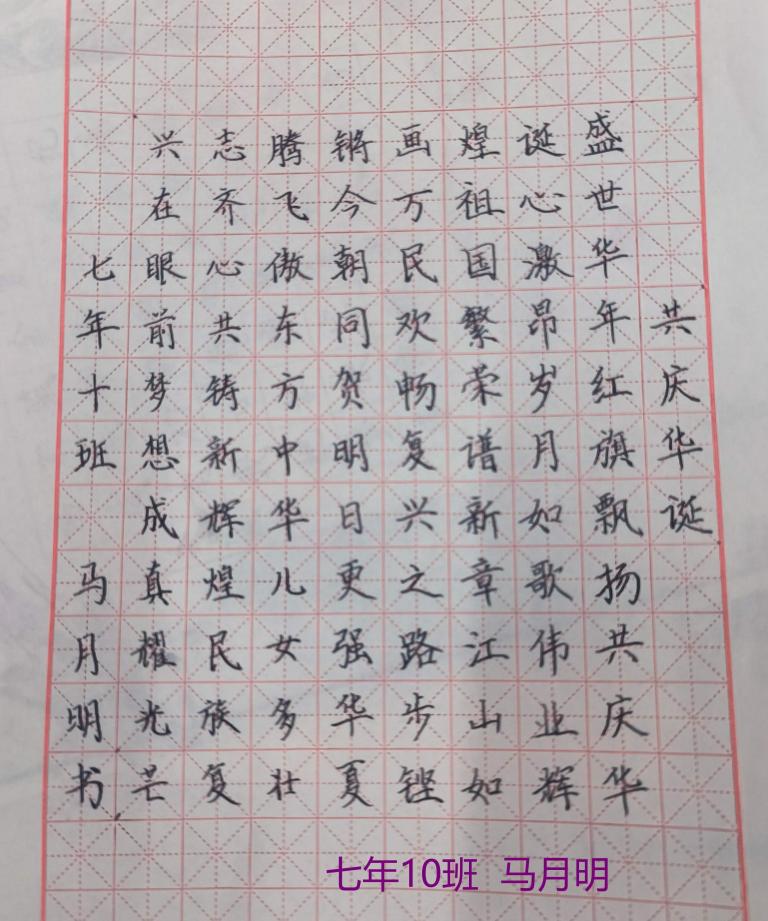 共庆华诞
盛世华年红旗飘扬共庆华
诞心激昂岁月如歌伟业辉
煌祖国繁荣谱新章江山如
画万民欢畅复兴之路步铿
锵今朝同贺明日更强华夏
腾飞傲东方中华儿女多壮
志齐心共铸新辉煌民族复
兴在眼前梦想成真耀光芒
七年十班 马月明书
七年10班 马月明